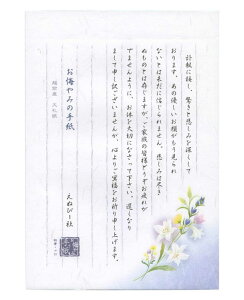 訃報に接し、驚きと悲しみを深くして
おります。あの優しいお顔がもう見られ
ないとは未だに信じられません。悲しみは尽き
ぬものとは存じますが、ご家族の皆様どうぞお疲れが
でませんように、お体を大切になさって下さい。遅くなり
まして申し訳ございませんが、心よりご冥福をお祈り申し上げます。
お悔やみの手紙
えぬびー社